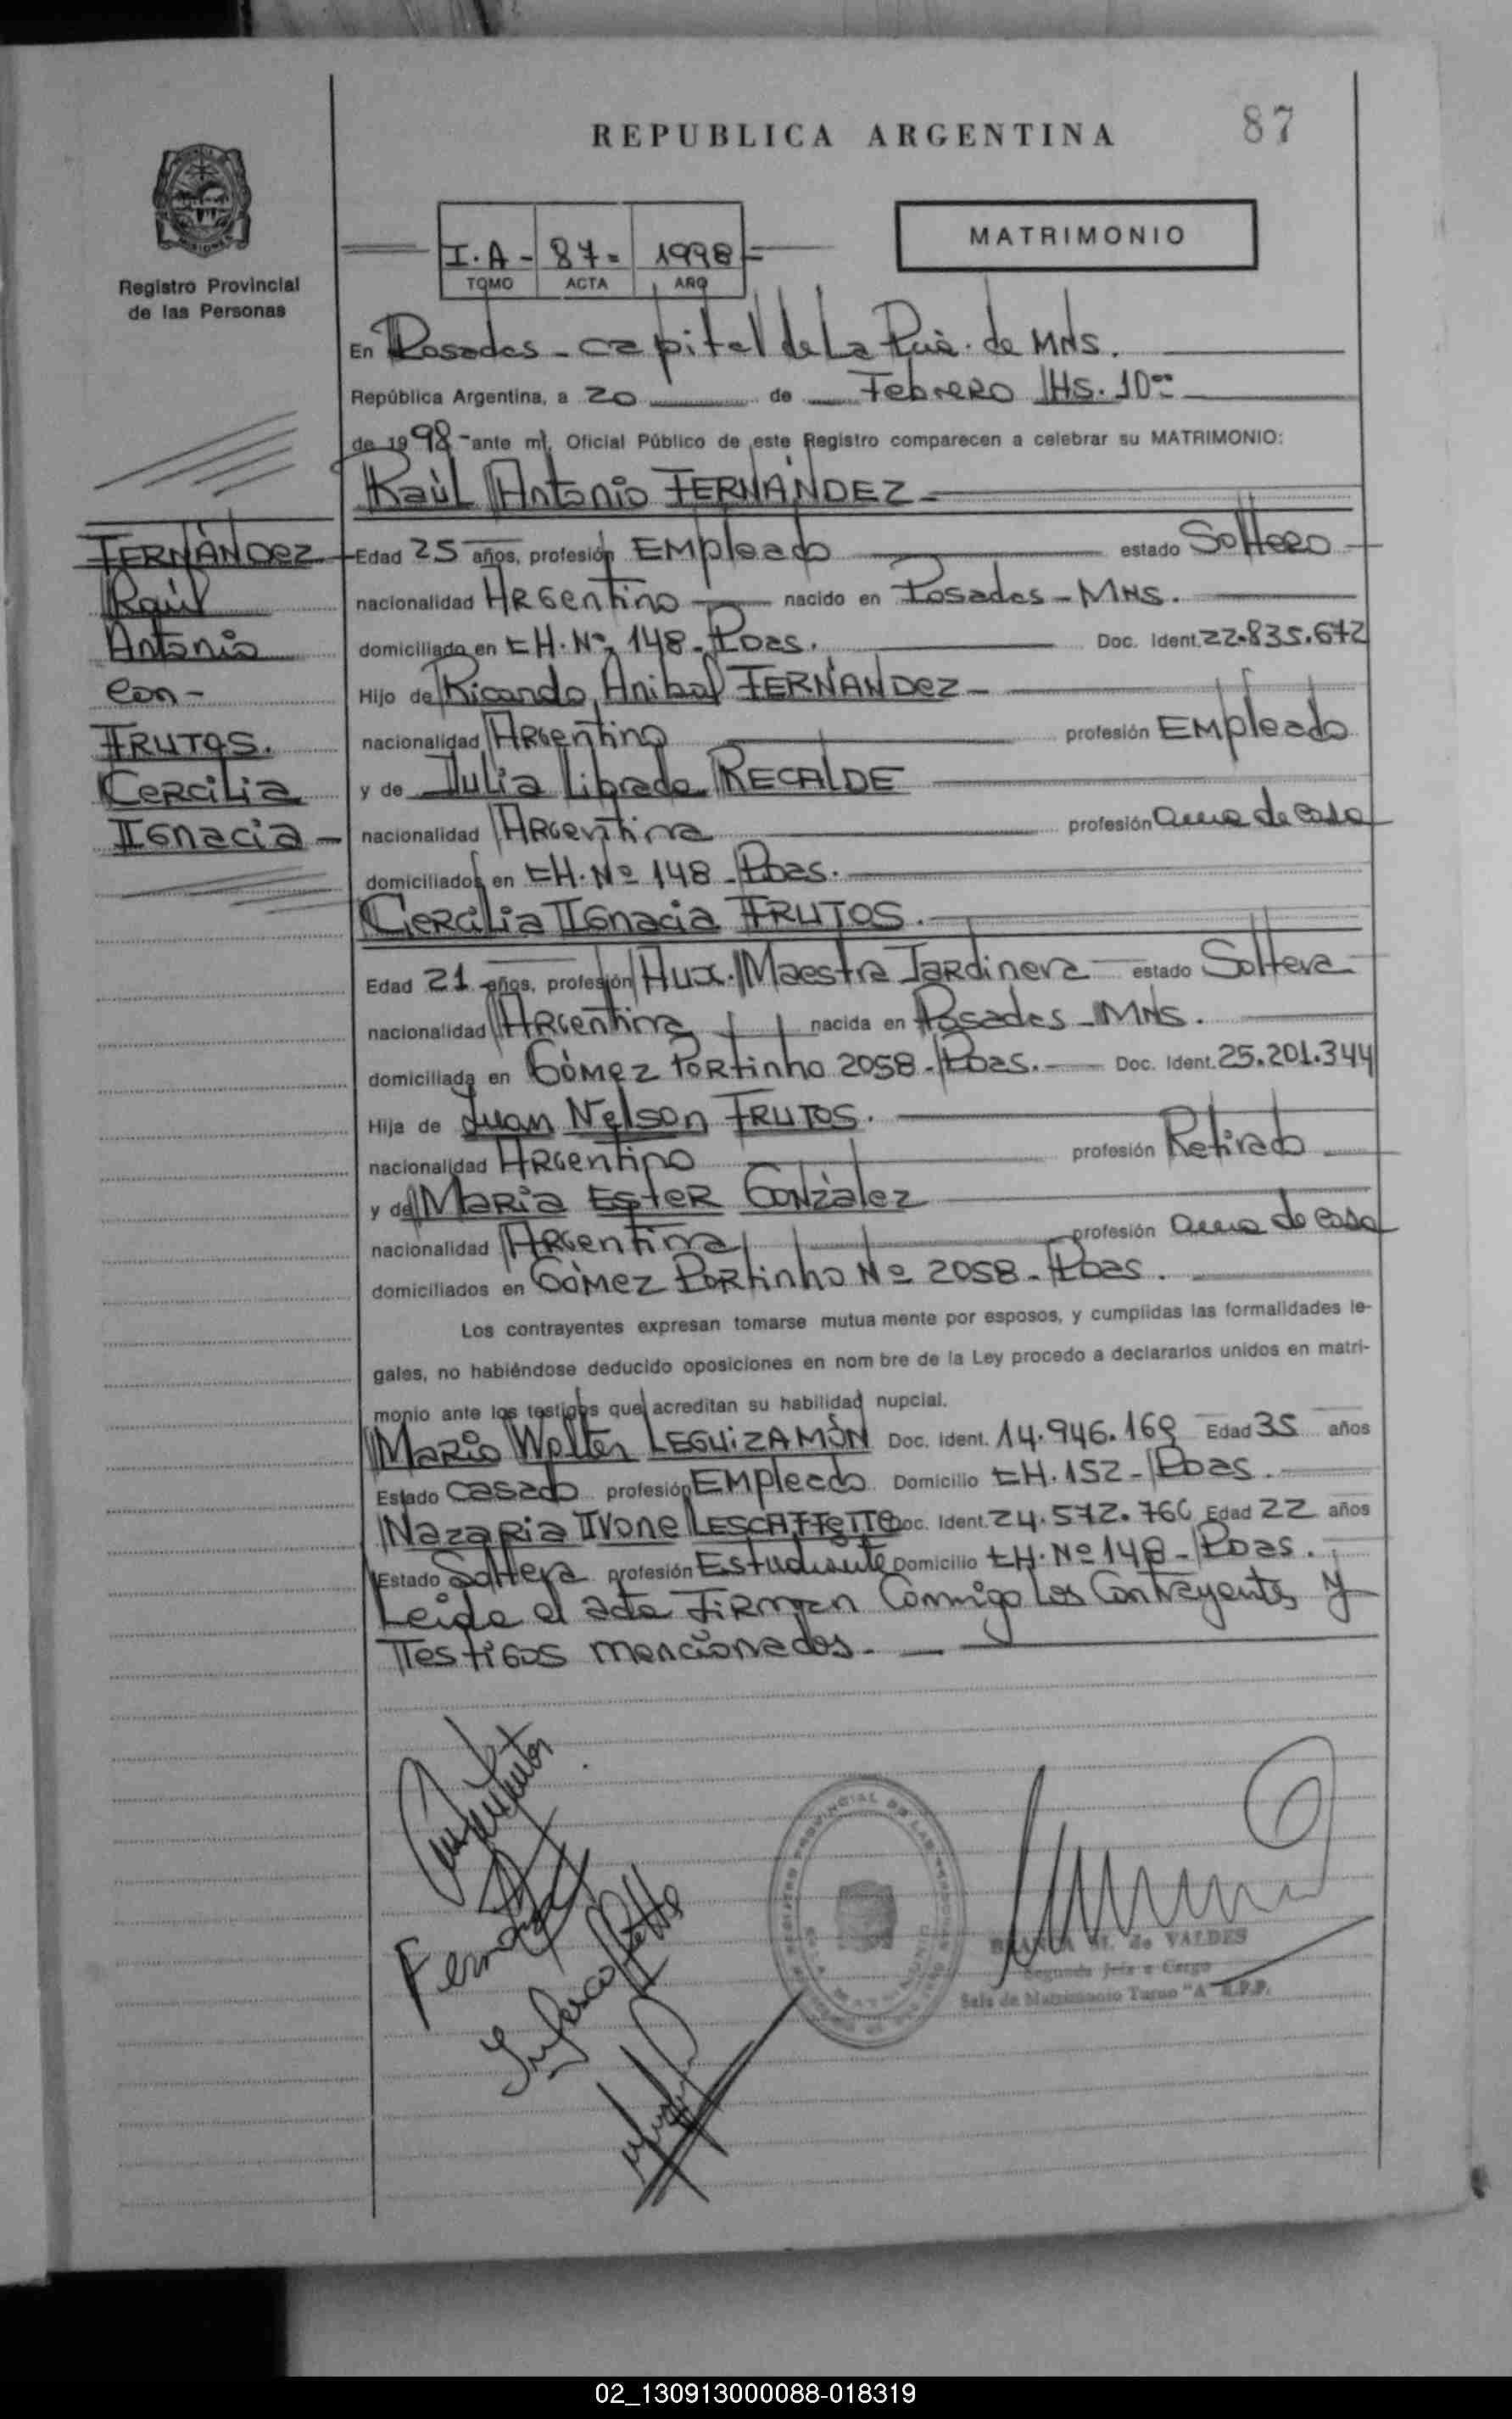 87
REPUBLICA ARGENTINA
MATRIMONIO
I.A - 87 = 1998 =
TOMO ACTA AÑO
Registro Provincial
de las Personas
En Posadas - capital de La Pcia. de MNS.
República Argentina, a 20 de Febrero HS. 10
de 1998 - ante mí, Oficial Público de este Registro comparecen a celebrar su MATRIMONIO:
Raúl Antonio FERNÁNDEZ
FERNÁNDEZ
Raúl
Antonio
con -
FRUTOS.
Cercilia
Ignacia -
Edad 25 años, profesión Empleado estado Soltero
nacionalidad Argentino nacido en Posadas - MNS.
domiciliado en CH. Nº 148 - Pdas. Doc. Ident. 22.835.672
Hijo de Ricardo Anibal FERNÁNDEZ -
nacionalidad Argentino profesión Empleado
y de Julia Librada RECALDE
nacionalidad Argentina profesión ama de casa
domiciliados en CH. Nº 148 - Pdas.
Cercilia Ignacia FRUTOS.
Edad 21 años, profesión Aux. Maestra Jardinera estado Soltera
nacionalidad Argentina nacida en Posadas - MNS.
domiciliada en Gómez Portinho 2058 - Pdas. Doc. Ident. 25.201.344
Hija de Juan Nelson FRUTOS.
nacionalidad Argentino profesión Retirado
y de María Ester González
nacionalidad Argentina profesión ama de casa
domiciliados en Gómez Portinho Nº 2058 - Pdas.
Los contrayentes expresan tomarse mutua mente por esposos, y cumplidas las formalidades le-
gales, no habiéndose deducido oposiciones en nom bre de la Ley procedo a declararlos unidos en matri-
monio ante los testigos que acreditan su habilidad nupcial.
Mario Walter LEGUIZAMÓN Doc. Ident. 14.946.169 Edad 35 años
Estado Casado profesión Empleado Domicilio CH. 152 - Pdas.
Nazaria Ivone LESCAFFETTE Doc. Ident. 24.572.766 Edad 22 años
Estado Soltera profesión Estudiante Domicilio CH. Nº 148 - Pdas.
Leída el acta firman conmigo los contrayentes y
Testigos mencionados.
Fernandez
Lescaffette
REGISTRO PROVINCIAL DE LAS PERSONAS
BLANCA M. de VALDES
Segunda Jefa a Cargo
Sala de Matrimonio Turno "A" R.P.P.
02_130913000088-018319